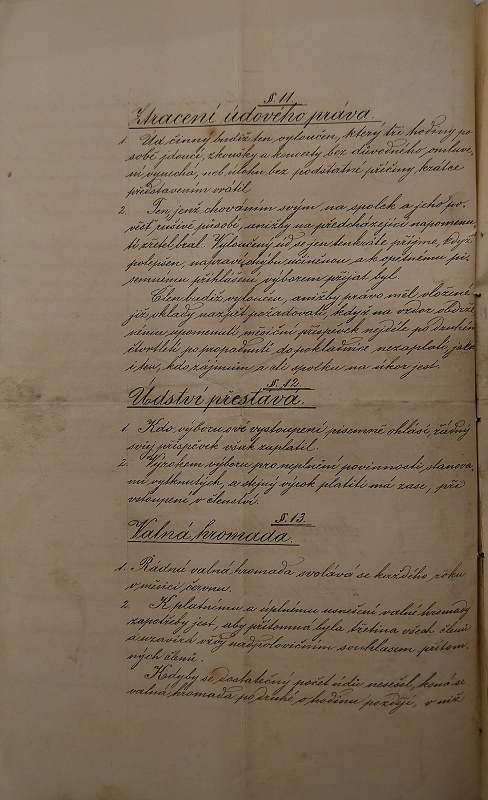 §. 11.
Ztracení údového práva.
1. Úd činný budiž ten vyloučen, který tři hodiny po
sobě jdoucí, zkoušky a koncerty bez důvodného omluve-
ní vynechá, neb úlohu bez podstatné příčiny krátce
představením vrátil
2. Ten jenž chováním svým na spolek a jeho po-
věst rušivě působí, aniž by na předcházející napomenu-
tí zřetel bral. Vyloučený úd se jen tenkráte přijme, když
polepšen, napraví chybu učiněnou a k opětnému pí-
semnému přihlášení výborem přijat byl.
Člen budiž vyloučen, aniž by právo měl vložené
již vklady nazpět požadovati, když na vzdor obdrže-
nému upomenutí měsíční příspěvek nejdéle po druhém
čtvrtletí po propadnutí do pokladnice nezaplatí, jako
i ten, kdo zájmům a cti spolku na úkor jest.
§. 12.
Údství přestává.
1. Kdo výboru své vystoupení písemně ohlásí, řádný
svůj příspěvek však zaplatil.
2. Výrokem výboru pro neplnění povinností stanova-
mi vytknutých, a stejný výrok platiti má zase, při
vstoupení v členství.
§. 13.
Valná hromada.
1. Řádná valná hromada svolává se každého roku
v měsíci červnu.
2. K platnému a úplnému usnešení valné hromady
zapotřebí jest, aby přítomna byla třetina všech členů
a uzavírá vždy nadpolovičním souhlasem přítom-
ných členů.
Kdyby se dostatečný počet údů nesešel, koná se
valná hromada po druhé o hodinu později, v níž